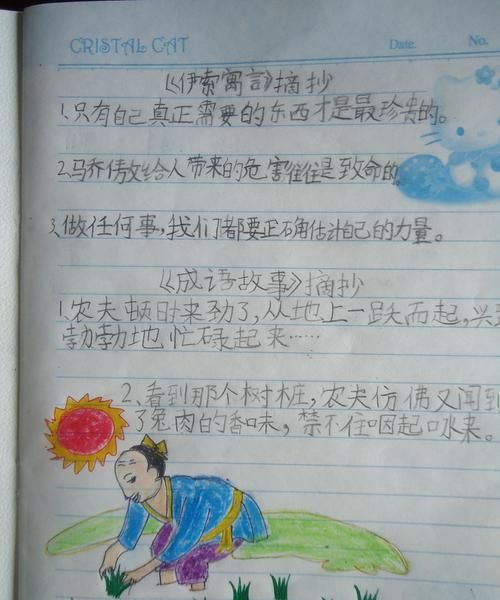 CRISTAL CAT Date. No.
《伊索寓言》摘抄
1.只有自己真正需要的东西才是最珍贵的。
2.马乔倩敓给人带来的危害往往是致命的。
3.做任何事,我们都要正确估计自己的力量。
《成语故事》摘抄
1.农夫顿时来劲了,从地上一跃而起,兴致
勃勃地忙碌起来……
2、看到那个树桩,农夫仿佛又闻到
了兔肉的香味,禁不住咽起口水来。